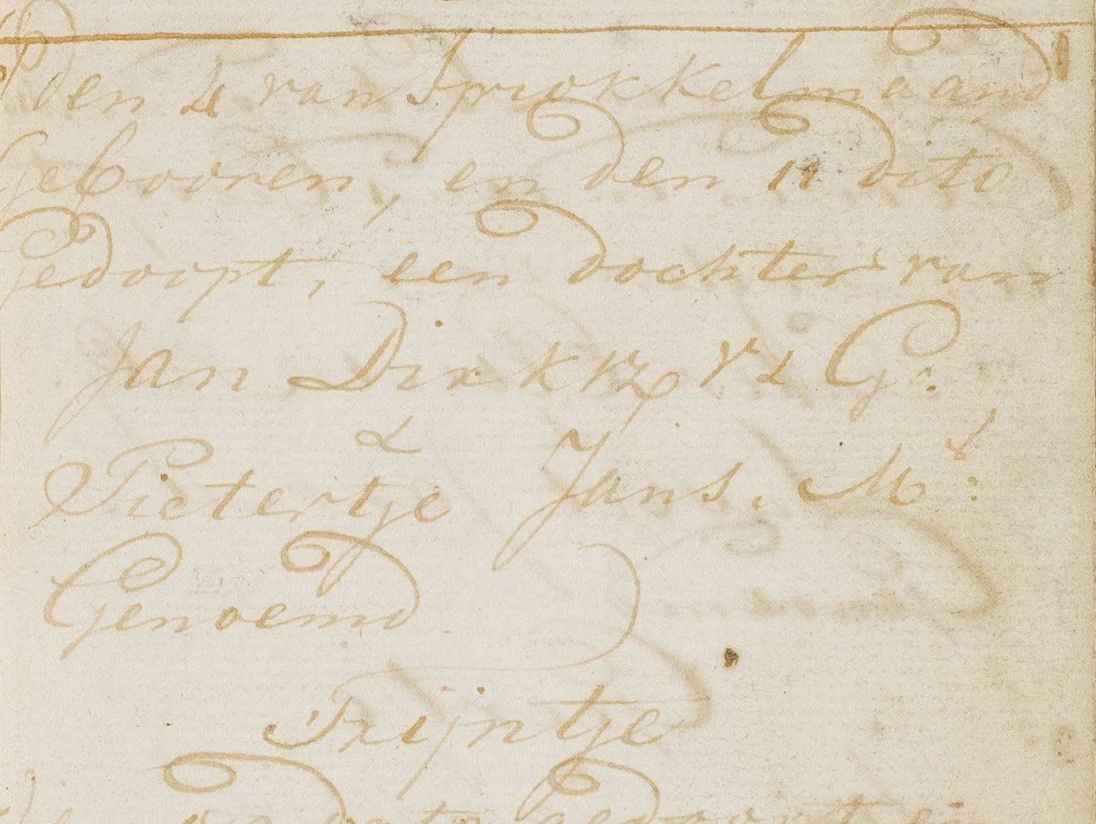 Den 4 van Sprokkelmaand
Gebooren, en den 11 dito
Gedoopt, een dochter van
Jan Dirkkz V: & G:
&
Pietertje Jans. M:
Genoemd
Trijntje
dato gedoopt